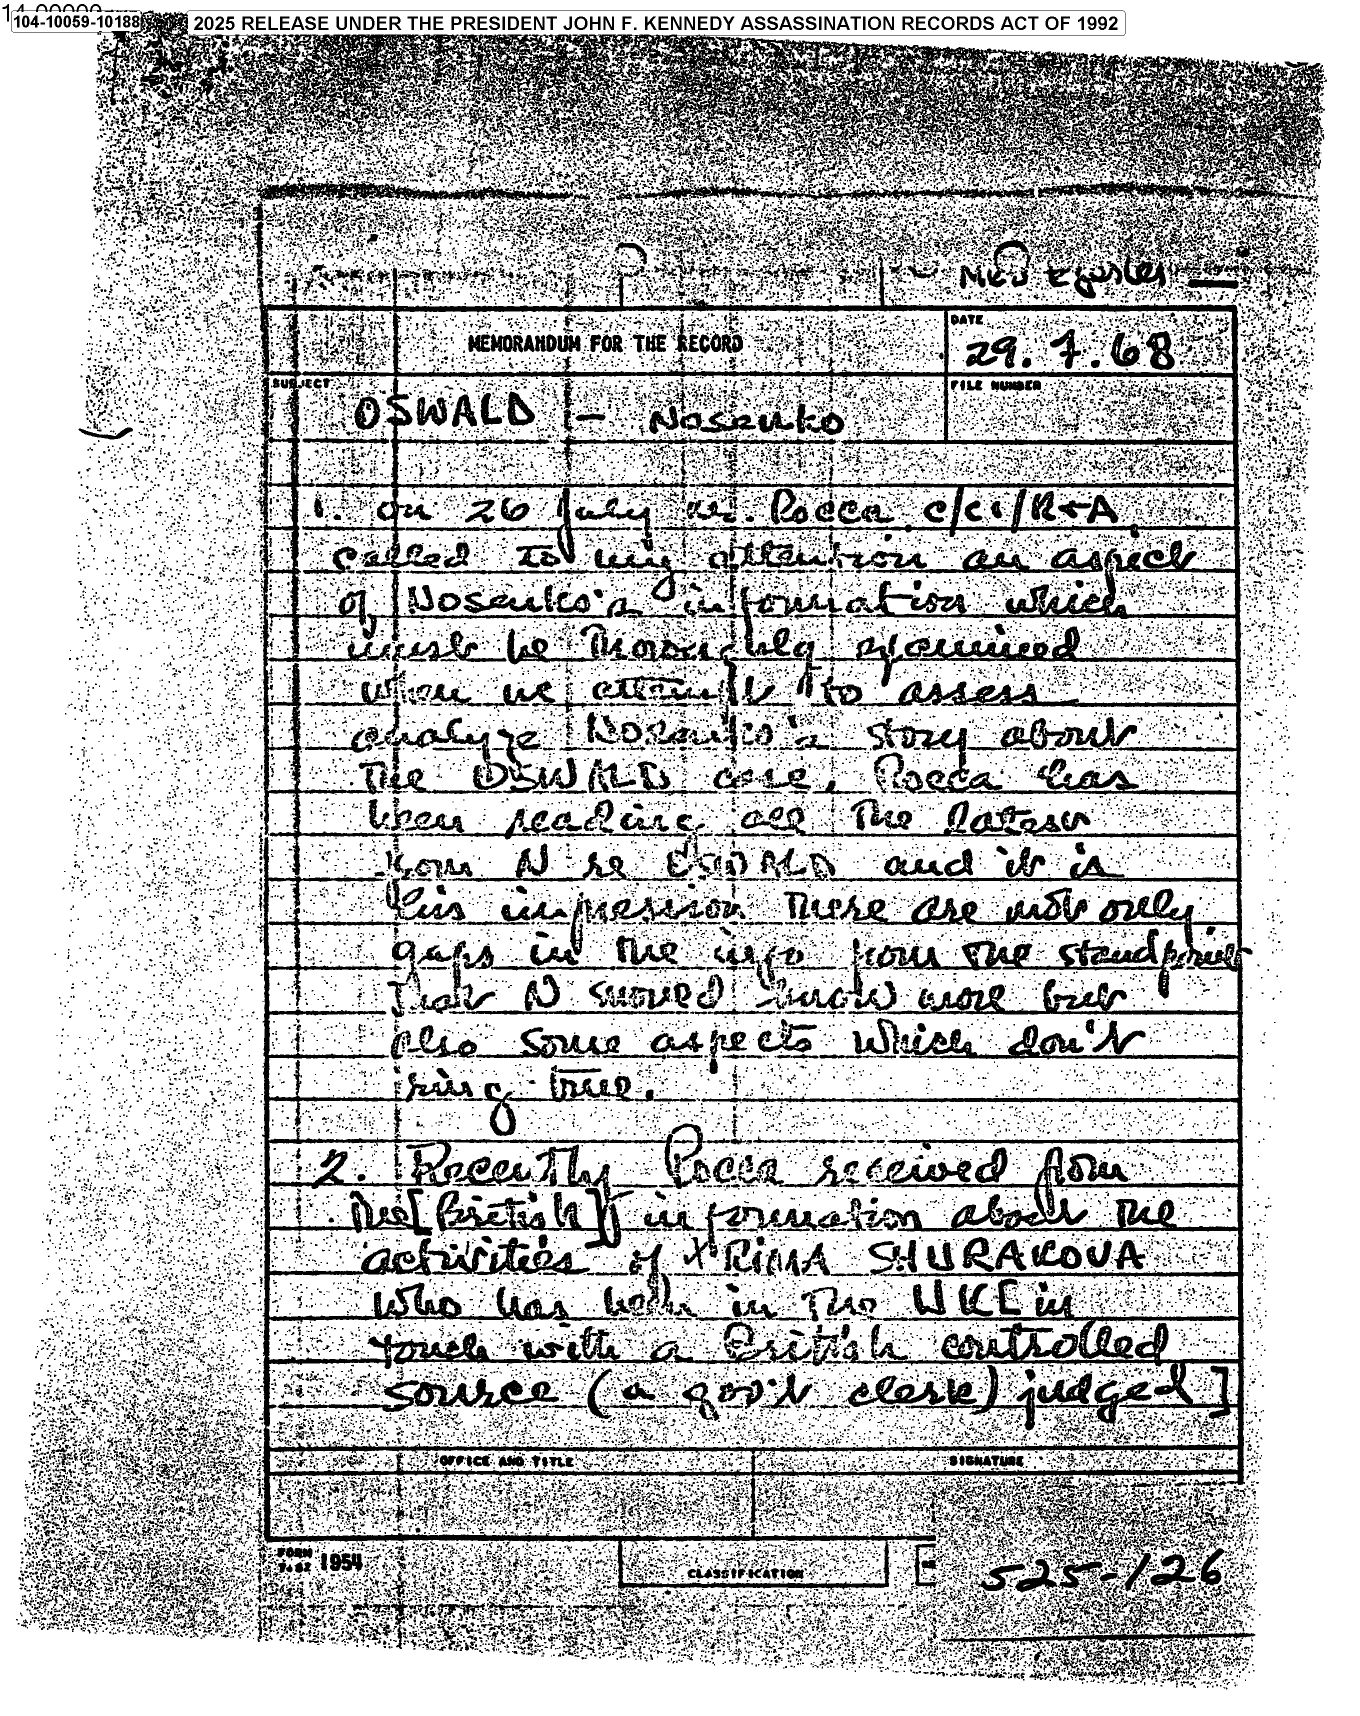 104-10059-10188
2025 RELEASE UNDER THE PRESIDENT JOHN F. KENNEDY ASSASSINATION RECORDS ACT OF 1992
MEMORANDUM FOR THE RECORD
DATE
29.7.68
SUBJECT
OSWALD - Nosenko
FILE NUMBER
1. On 26 July Mr. Rocca C/CI/R+A
called to my attention an aspect
of Nosenko's information which
must be thoroughly examined
when we attempt to assess
analyze Nosenko's story about
the OSWALD case. Rocca has
been reading all the latest
from N re OSWALD and it is
his impression there are not only
gaps in the info from the standpoint
that N should know more but
also some aspects which don't
ring true.
2. Recently Rocca received from
the [British] information about the
activities of x RIMA SHIRAKOVA
who has been in the UK [in
touch with a British controlled
source (a gov't clerk) judged]
OFFICE AND TITLE
SIGNATURE
FORM
1954
CLASSIFICATION
525-126